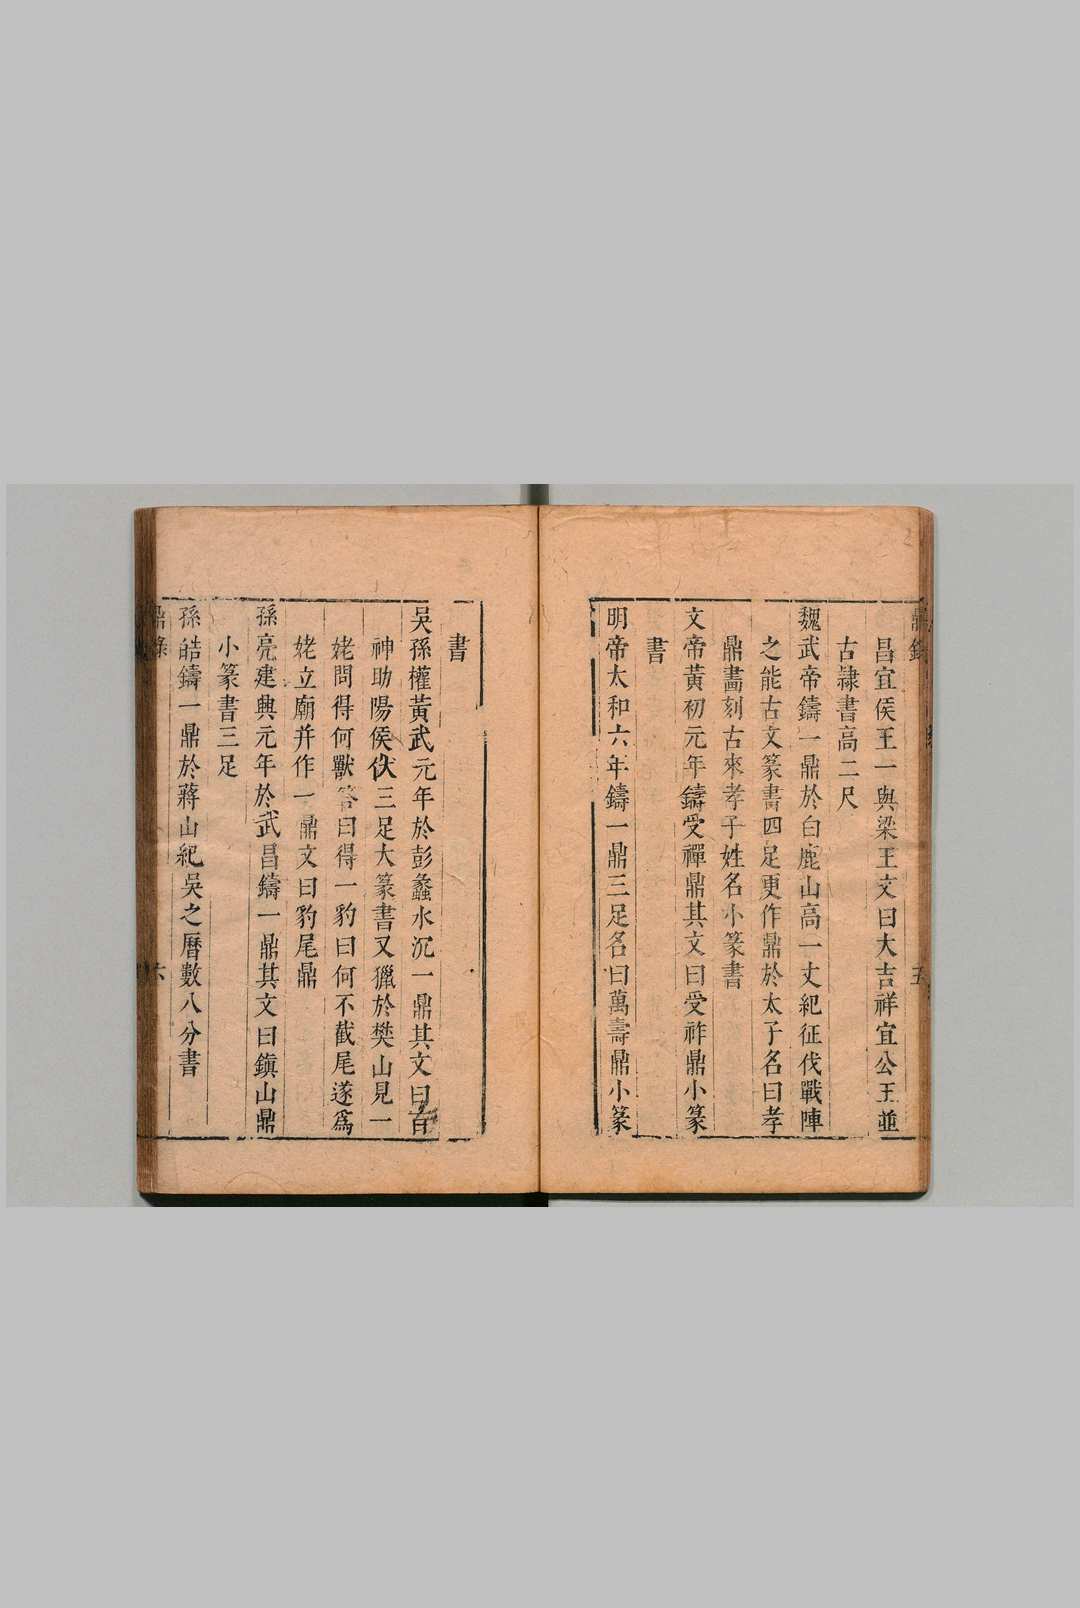 鼎錄
五
昌宜侯王一與梁王文曰大吉祥宜公王並
古隷書高二尺
魏武帝鑄一鼎於白鹿山高一丈紀征伐戰陣
之能古文篆書四足更作鼎於太子名曰孝
鼎畵刻古來孝子姓名小篆書
文帝黃初元年鑄受禪鼎其文曰受祚鼎小篆
書
明帝太和六年鑄一鼎三足名曰萬壽鼎小篆
書
吳孫權黃武元年於彭蠡水沉一鼎其文曰百
神助陽侯伏三足大篆書又獵於樊山見一
姥問得何獸答曰得一豹曰何不截尾遂爲
姥立廟并作一鼎文曰豹尾鼎
孫亮建興元年於武昌鑄一鼎其文曰鎭山鼎
小篆書三足
孫皓鑄一鼎於蔣山紀吳之曆數八分書
鼎錄
六